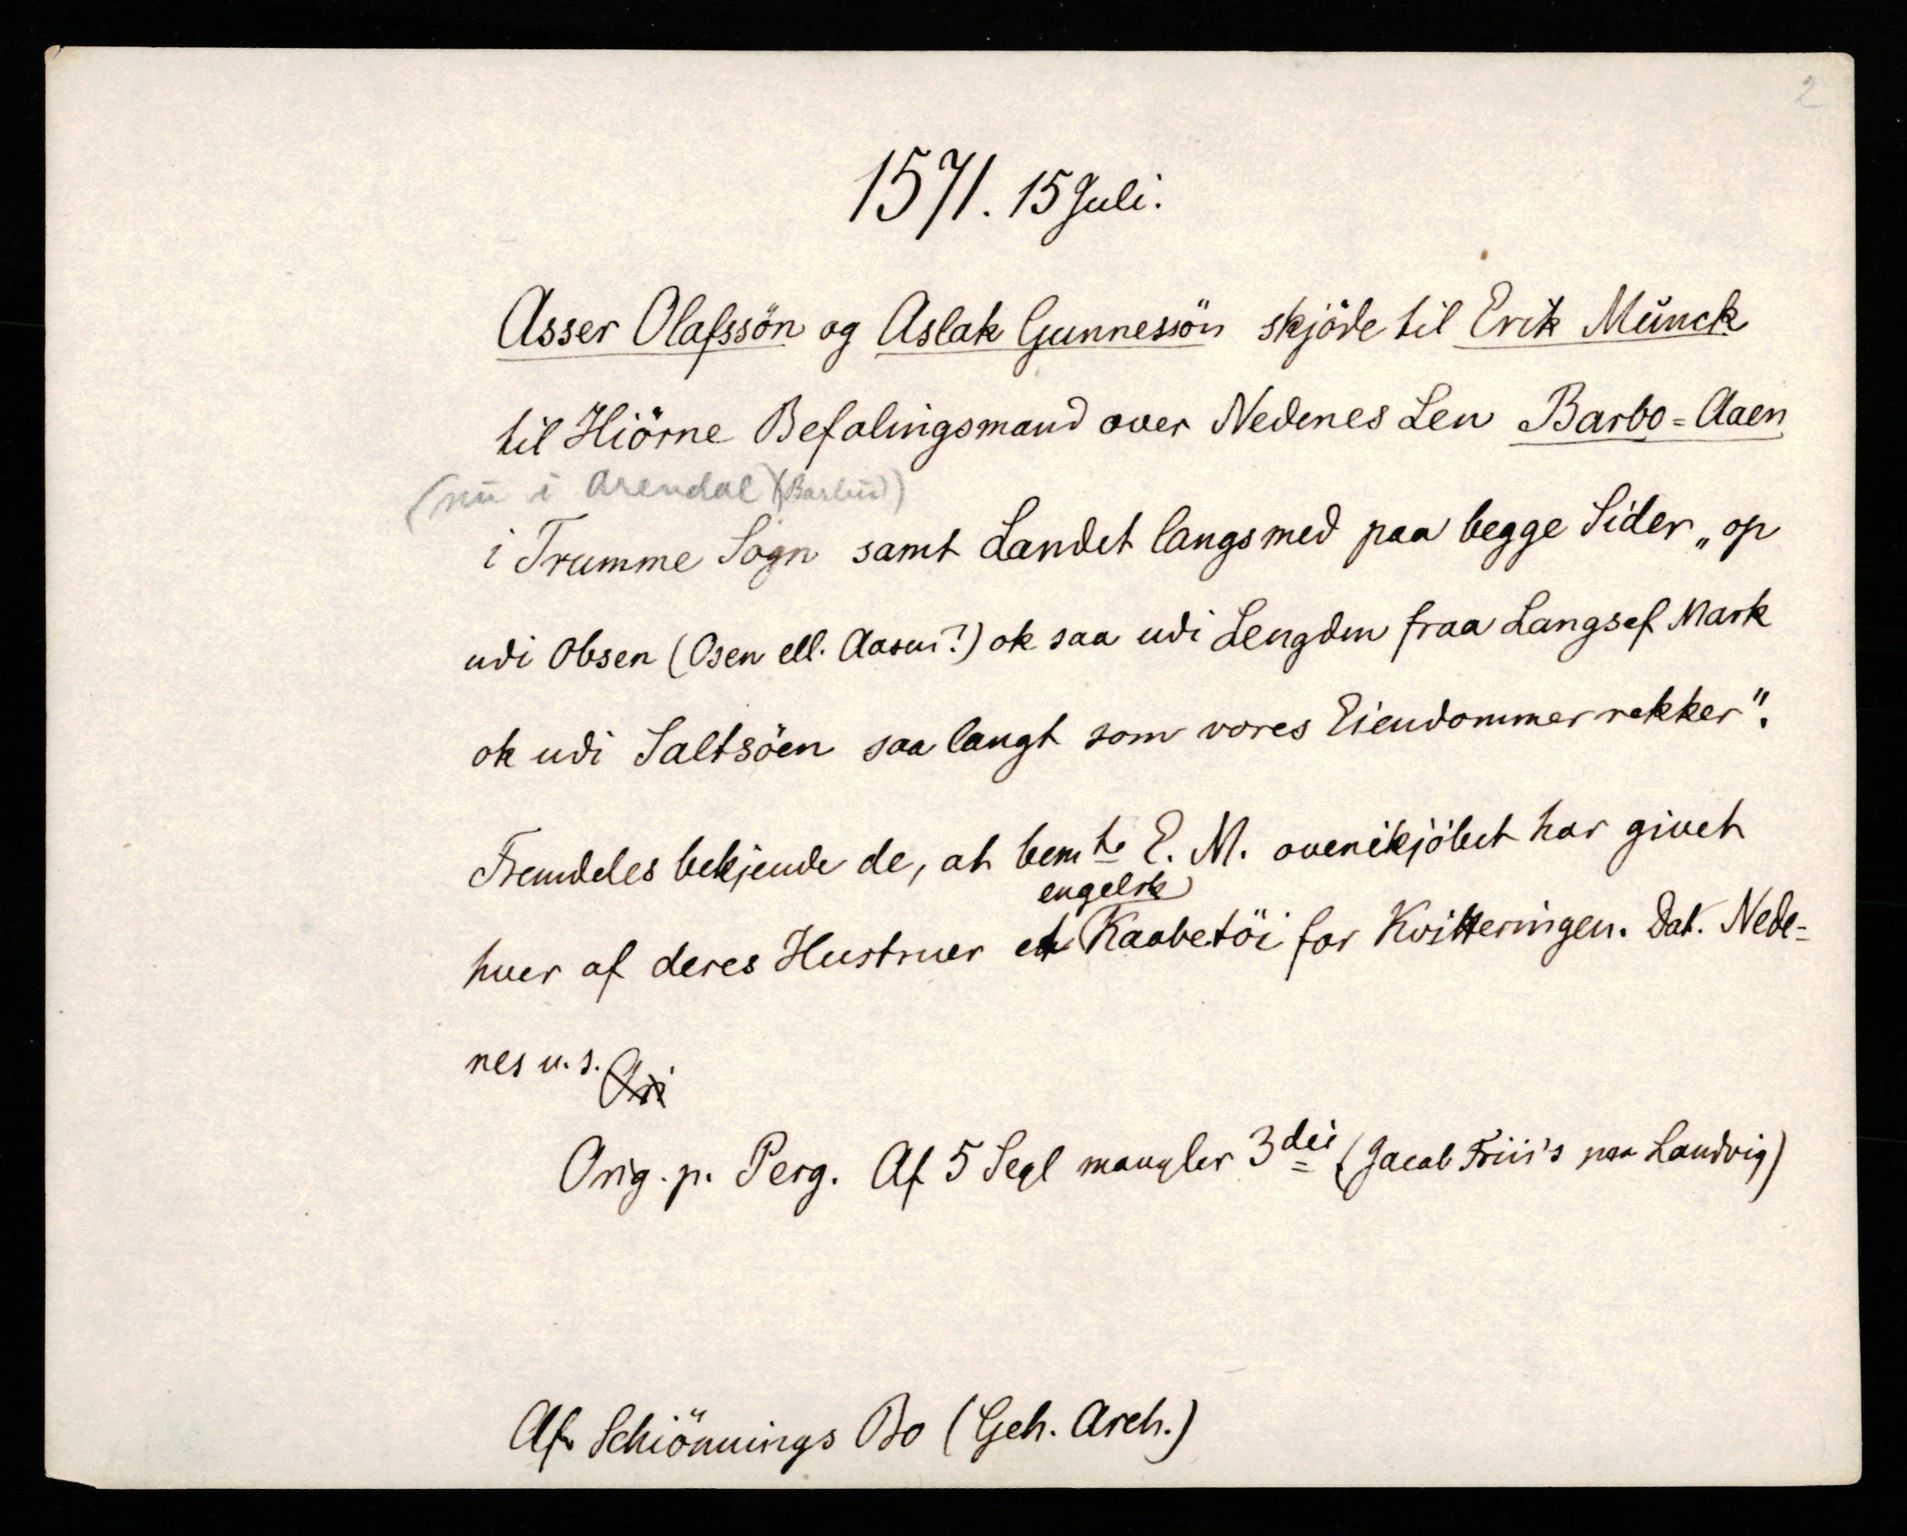 2
1571. 15 Juli.
Asser Olafssön og Aslak Gunnessön skjöde til Erik Munck
til Hiörne Befalingsmand over Nedenes Len Barbo=Aaen
(nu i Arendal) (Barbu)
i Trumme Sogn samt Landet langsmed paa begge Sider „op
udi Obsen (Osen ell. Aasen?) ok saa udi Lengden fraa Langsef Mark
ok udi Saltsöen saa langt som vores Eiendommer rekker".
Fremdeles bekjende de, at bemte E. M. ovenikjöbet har givet
engelsk
hver af deres Hustruer et Kaabetöi for Kvitteringen. Dat. Nede=
nes u. s. Ori
Orig. p. Perg. Af 5 Segl mangler 3die (Jacob Friis's paa Landvig)
Af Schiönnings Bo (Geh. Arch.)